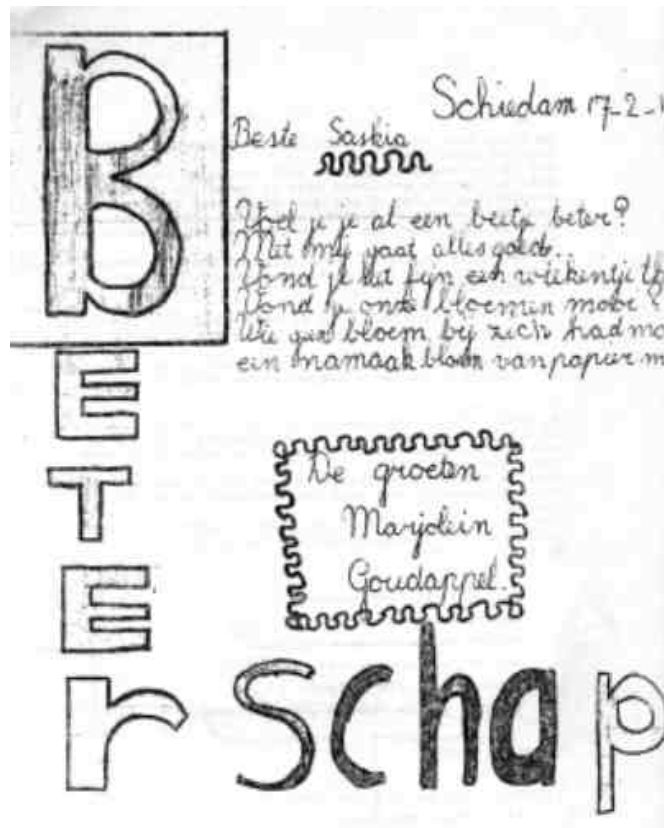 Schiedam 17-2-1
Beste Saskia
Voel je je al een beetje beter?
Met mij gaat alles goed.
Vond je het fijn een weekentje
Vond je onze bloemen mooi
Wie geen bloem bij zich had
een namaak bloem van papier m
De groeten
Marjolein
Goudappel.
BETEr
schap